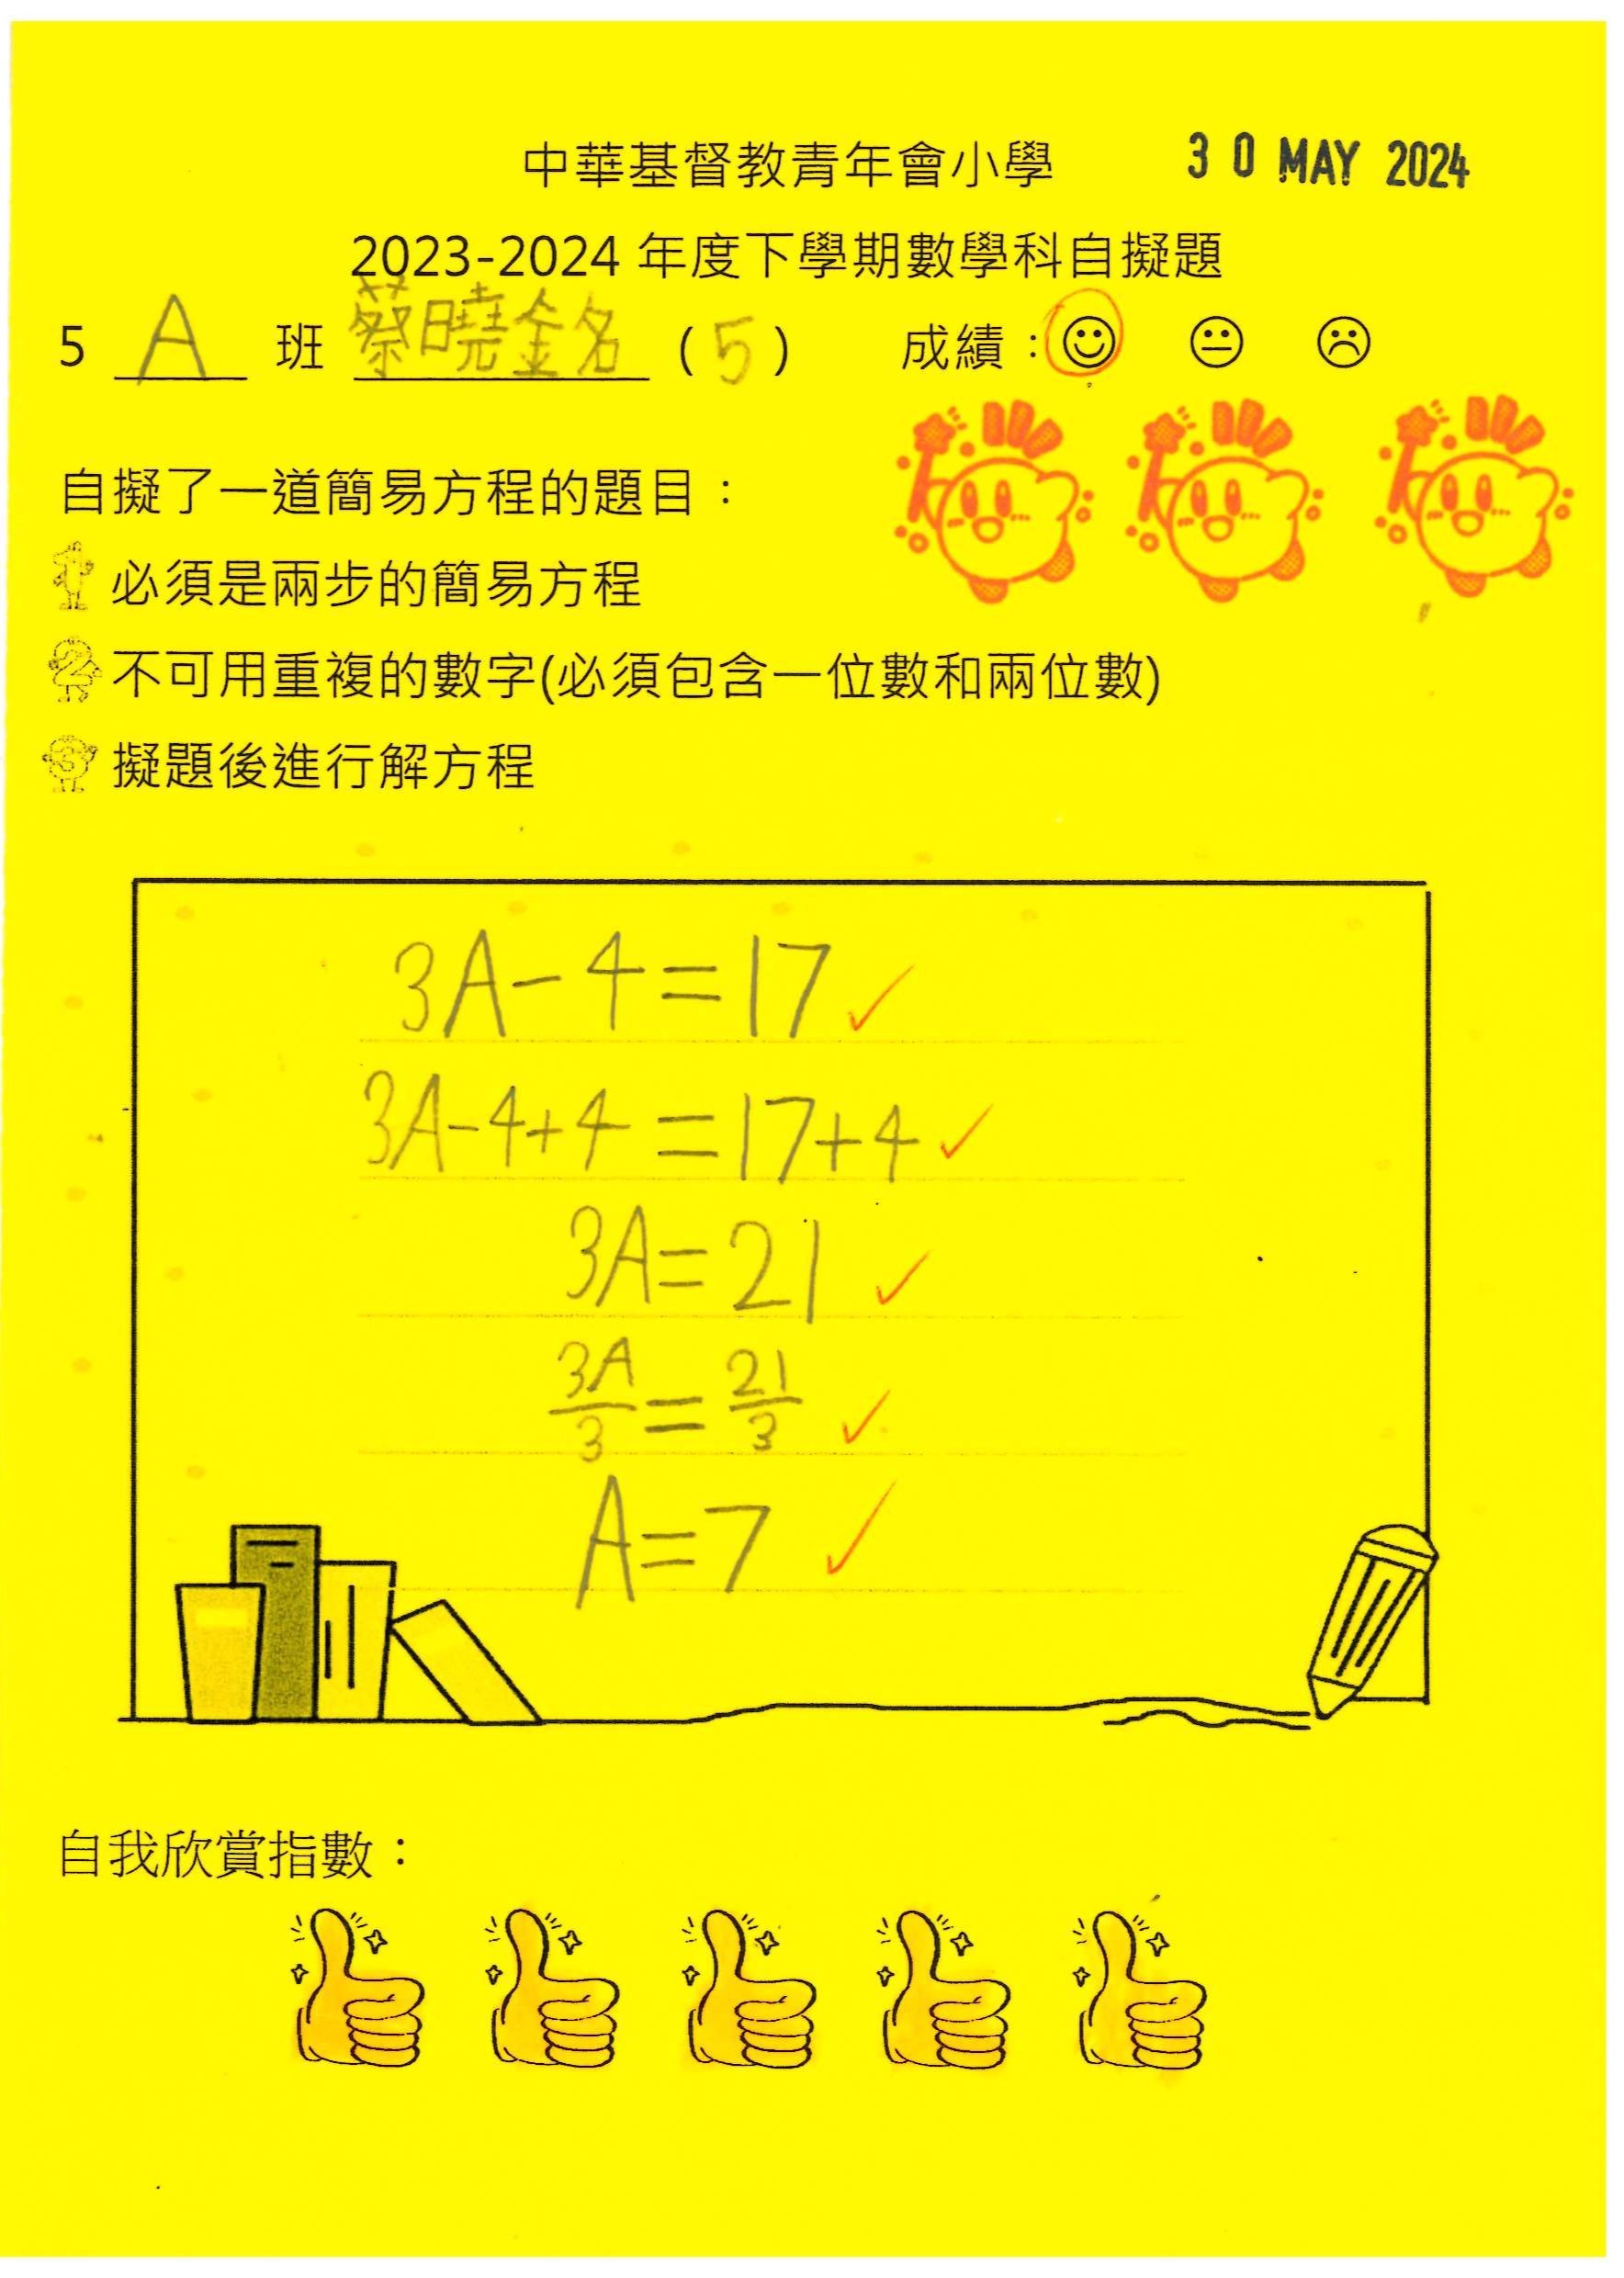 中華基督教青年會小學 30 MAY 2024
2023-2024 年度下學期數學科自擬題
5 A 班 蔡曉銘 (5) 成績：
自擬了一道簡易方程的題目：
1 必須是兩步的簡易方程
2 不可用重複的數字(必須包含一位數和兩位數)
3 擬題後進行解方程
3A-4=17
3A-4+4=17+4
3A=21
3A/3=21/3
A=7
自我欣賞指數：